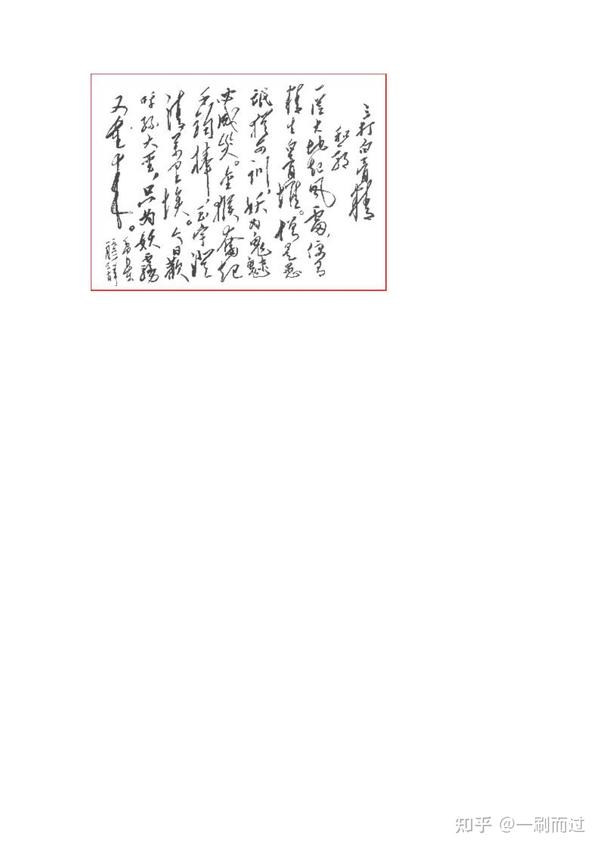 三打白骨精
和郭
一从大地起风雷,便有
精生白骨堆。僧是愚
氓犹可训,妖为鬼蜮
必成灾。金猴奋起
千钧棒,玉宇澄
清万里埃。今日欢
呼孙大圣,只为妖雾
又重来。
知乎 @一刷而过